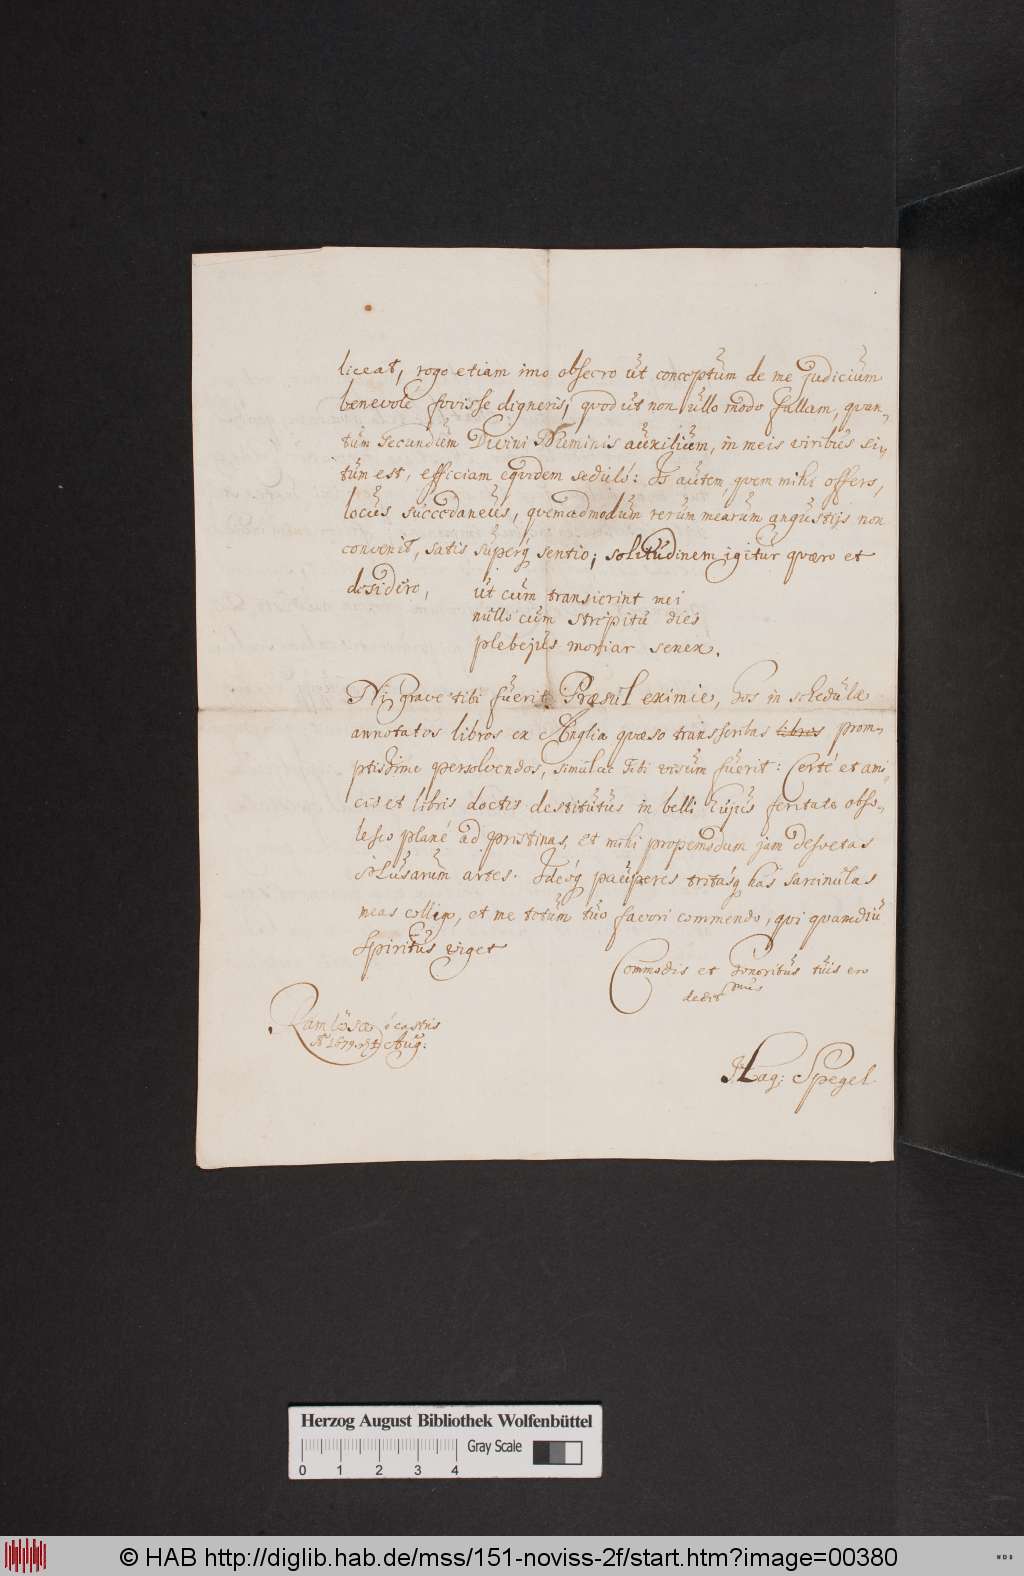 liceat, rogo etiam imo obsecro ut conceptum de me judicium
benevolè fovisse digneris; quod ut non ullo modo fallam, quan-
tum secundum Divini Numinis auxilium, in meis viribus si-
tum est, efficiam eqvidem sedulò: Is autem, qvem mihi offers,
locus succedaneus, qvemadmodum rerum mearum angustijs non
convenit, satis superq sentio; solitudinem igitur quæro et
desidero,
ut cum transierint mei
nullo cum strepitu dies
plebejus moriar senex.
Ni grave tibi fuerit Præsul eximie, hos in schedula
annotatos libros ex Anglia quæso transscribas libros prom-
ptissime persolvendos, simulac Tibi visum fuerit: Certè et ami-
cis et libris doctis destitutus in belli hujus feritate obso-
lesco planè ad pristinas, et mihi propemodum jam desvetas
solusarum artes. Ideoq pauperes tritasq has sarcinulas
meas colligo, et me totum tuo favori commendo, qvi quamdiu
Spiritus viget
Commodis et honoribus tuis ero
dedit mus
Ramlösæ è castris
Aº 1677. Aug:
Haq: Spegel.
Herzog August Bibliothek Wolfenbüttel
Gray Scale
0 1 2 3 4
© HAB http://diglib.hab.de/mss/151-noviss-2f/start.htm?image=00380